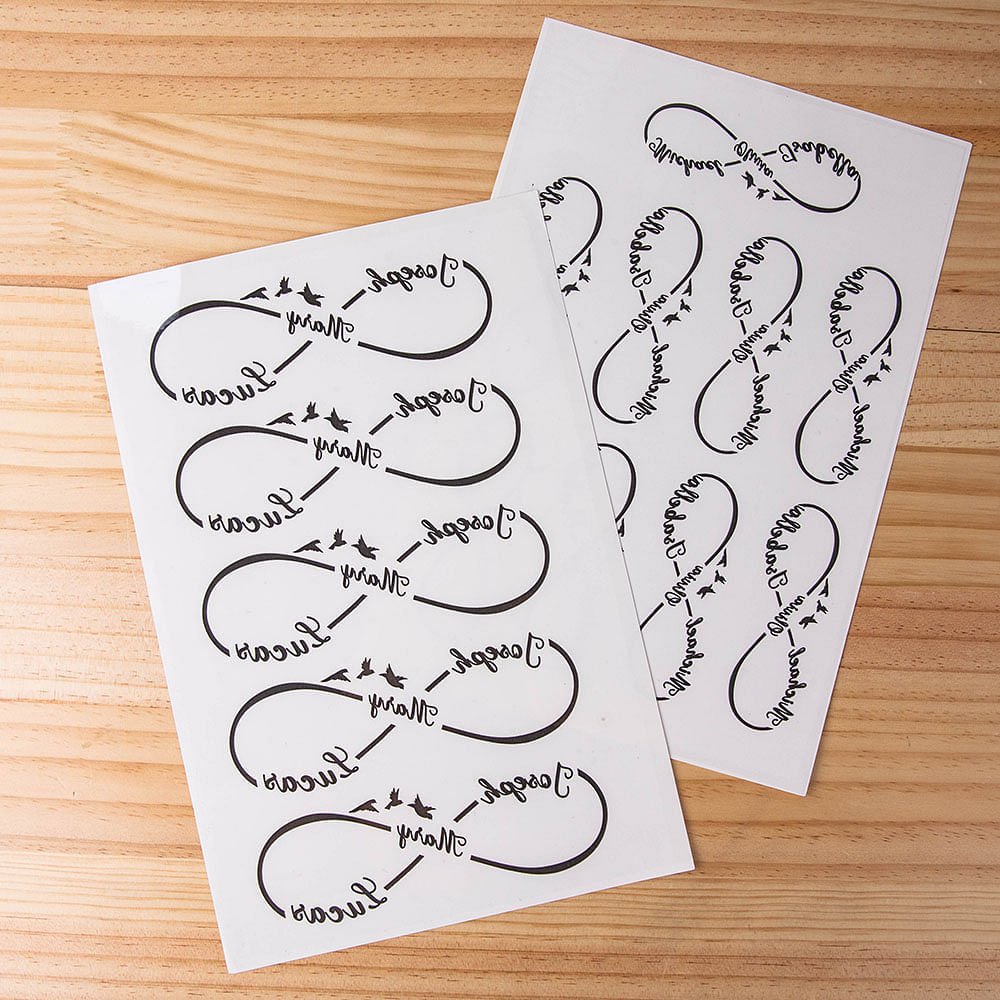 Joseph
Mary
Lucas
Joseph
Mary
Lucas
Joseph
Mary
Lucas
Joseph
Mary
Lucas
Joseph
Mary
Lucas
Michael Olivia Isabella
Michael Olivia Isabella
Michael Olivia Isabella
Michael Olivia Isabella
Michael Olivia Isabella
Michael Olivia Isabella